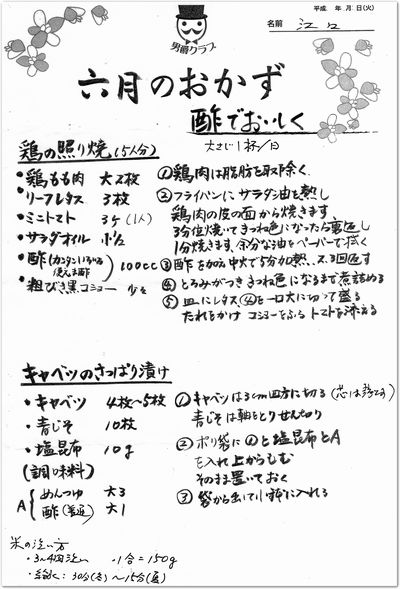 平成　年　月　日(火)
名前　江口
男爵クラブ
六月のおかず
酢でおいしく
大さじ1杯/日
鶏の照り焼(5人分)
・鶏もも肉　大2枚
・リーフレタス　3枚
・ミニトマト　3ケ(1人)
・サラダオイル　小1/2
・酢(カンタンいろいろ使える酢)　100cc
・粗びき黒コショー　少々
①鶏肉は脂肪を取り除く.
②フライパンにサラダ油を熱し
鶏肉の皮の面から焼きます
3分位焼いてきつね色になったら裏返し
1分焼きます、余分な油をペーパーで拭く
③酢を加え中火で5分加熱、2、3回返す
④とろみがつききつね色になるまで煮詰める
⑤皿にレタス④を一口大に切って盛る
たれをかけ コショーをふる トマトを添える
キャベツのさっぱり漬け
・キャベツ　4枚〜5枚
・青じそ　10枚
・塩昆布　10g
(調味料)
A めんつゆ　大3
酢(普通)　大1
①キャベツは3cm四方に切る
青じそは軸をとりせん切り
②ポリ袋に①と塩昆布とA
を入れ上からもむ
そのまま置いておく
③袋から出して小鉢に入れる
米の洗い方
・3〜4回洗い　・1合=150g
・給水:30分(冬)〜15分(夏)